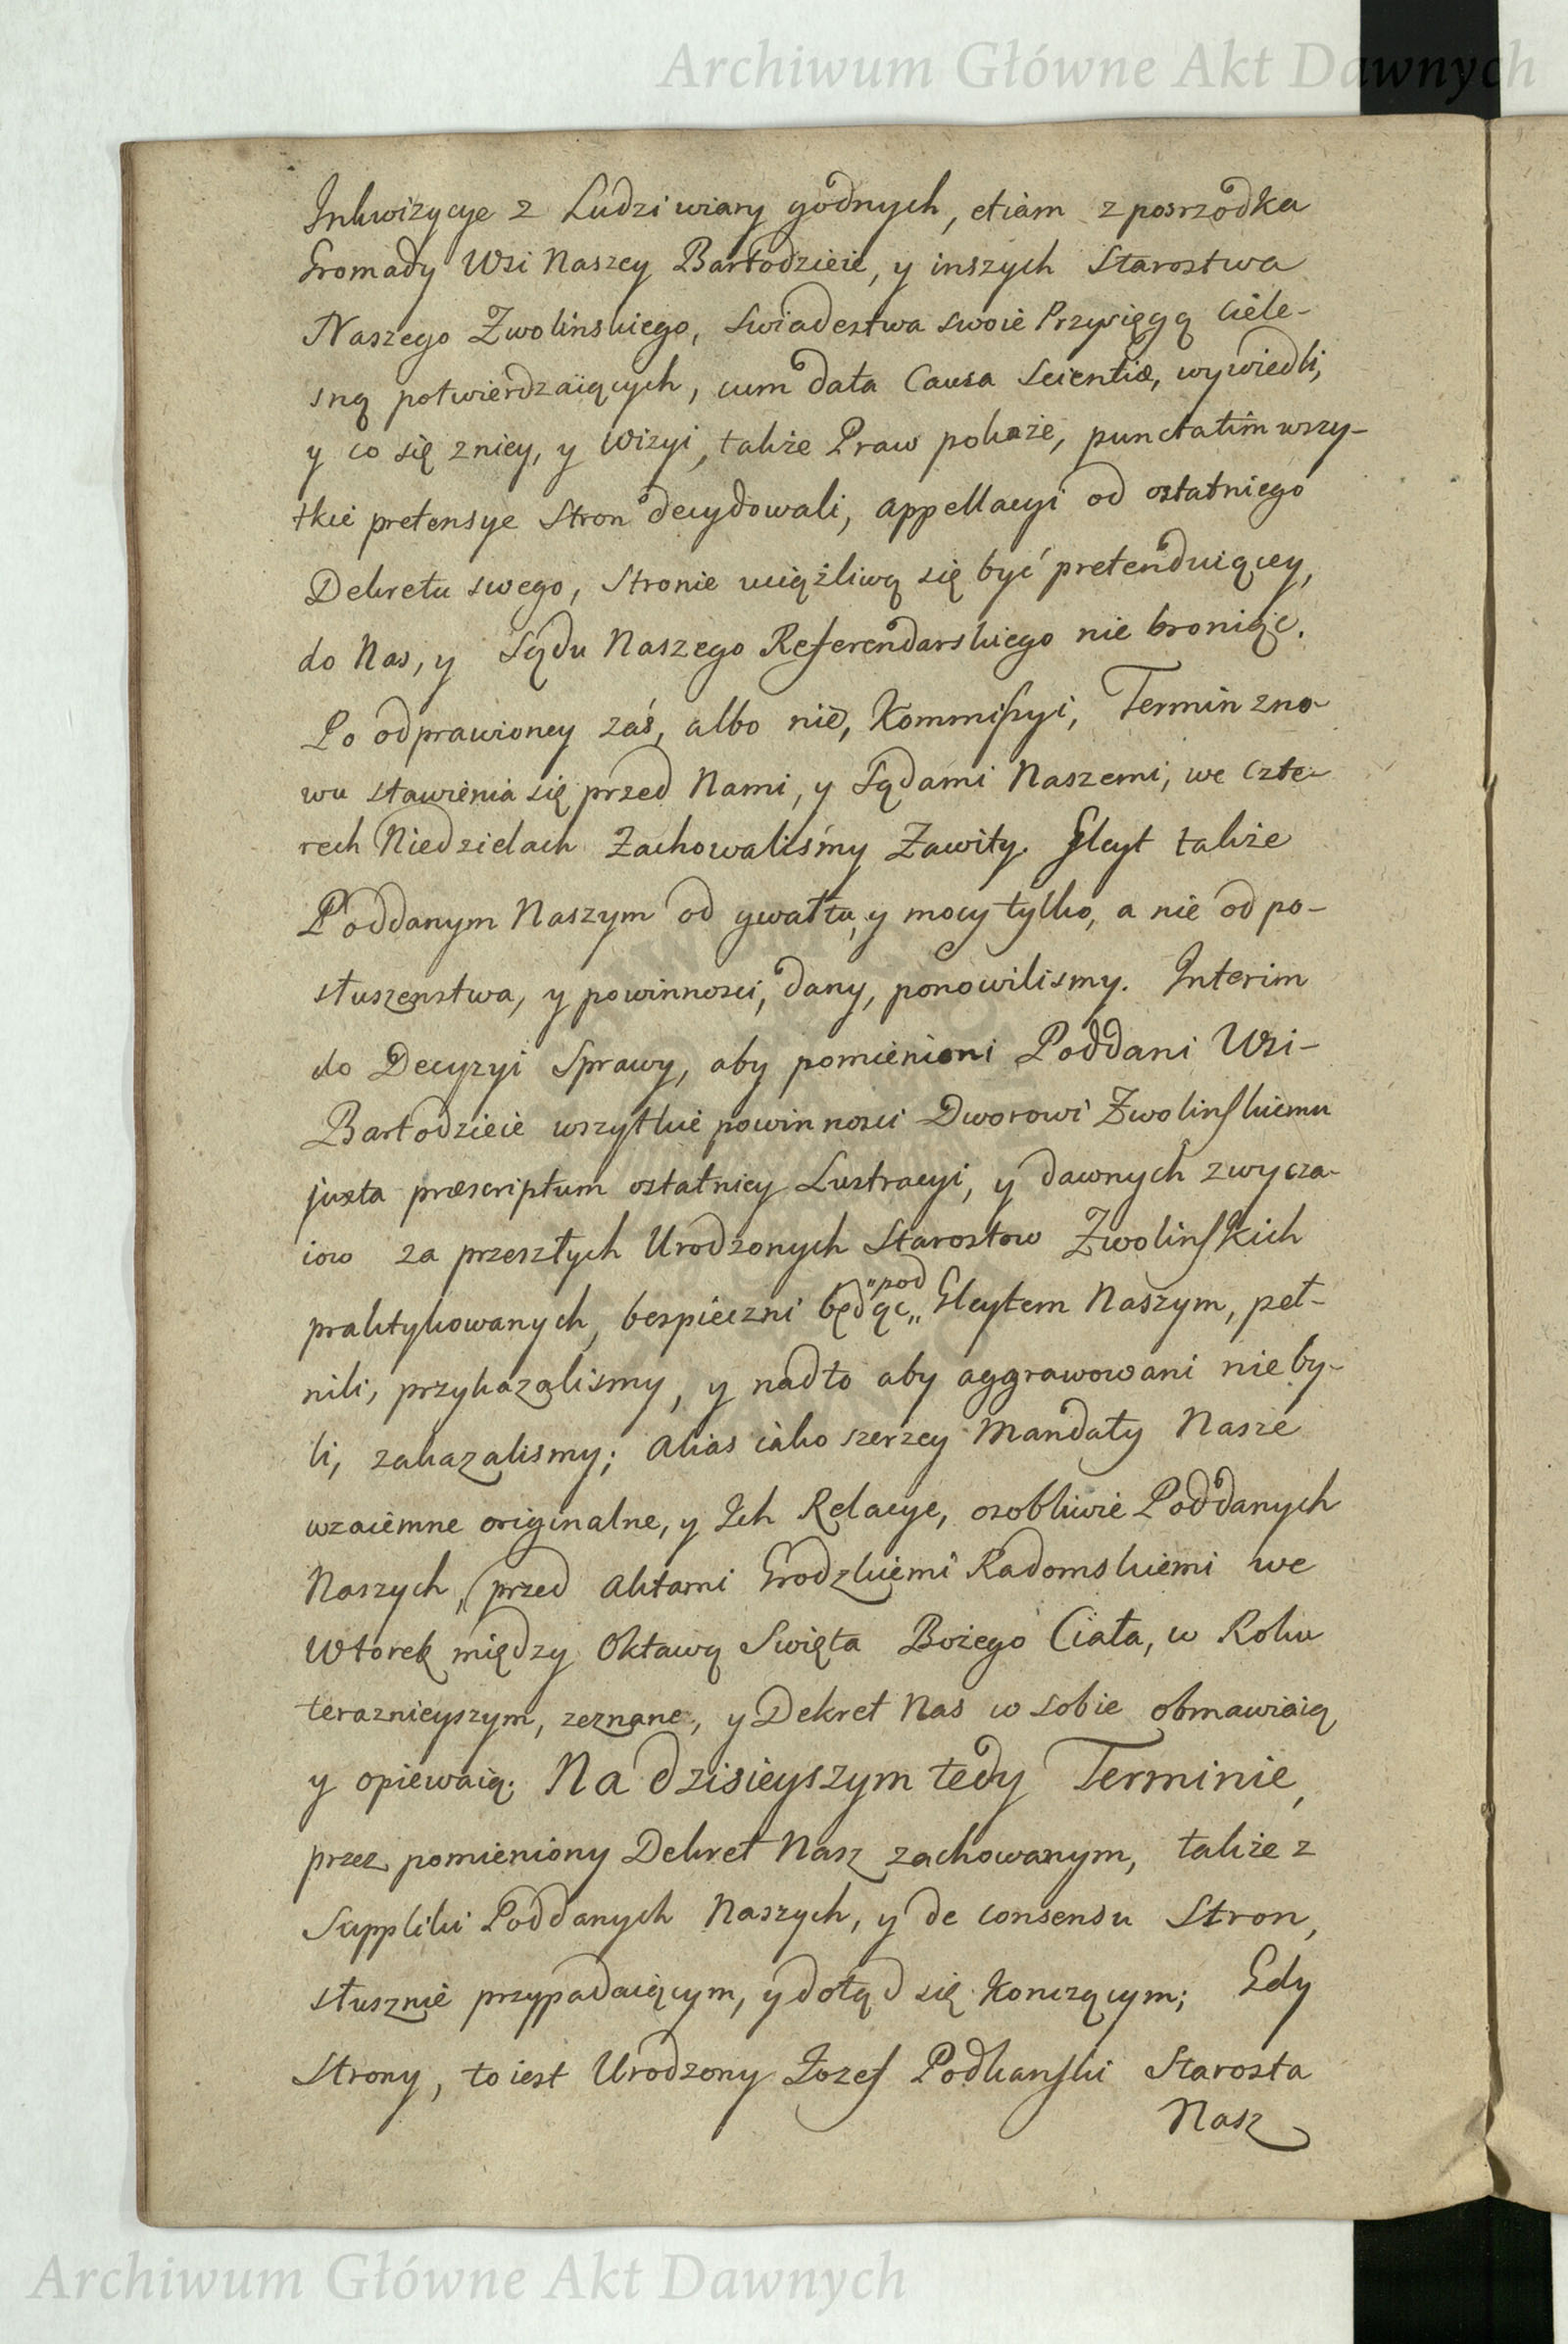 Archiwum Główne Akt Dawnych
Inkwizycye z Ludzi wiary godnych, etiam z posrzodka
Gromady Wsi Naszey Bartodzieie, y inszych Starostwa
Naszego Zwolinskiego, Swiadectwa swoie Przysięgą Ciele-
sną potwierdzaiących, cum data Causa Scientiæ, wywiedli,
y co się z niey, y Wizyi, także Praw pokaże, punctatim wszy-
tkie pretensye Stron decydowali, appellacyi od ostatniego
Dekretu swego, Stronie uciążliwą się być pretenduiącey,
do Nas, y Sądu Naszego Referendarskiego nie broniąc.
Po odprawioney zaś, albo nie, Kommissyi, Termin zno-
wu stawienia się przed Nami, y Sądami Naszemi, we czte-
rech Niedzielach Zachowaliśmy Zawity. Gleyt także
Poddanym Naszym od gwałtu, y mocy tylko, a nie od po-
słuszenstwa, y powinnosci, dany, ponowilismy. Interim
do Decyzyi Sprawy, aby pomienioni Poddani Wsi-
Bartodzieie wszytkie powinnosci Dworowi Zwolinskiemu
juxta præscriptum ostatniey Lustracyi, y dawnych zwycza-
iow za przeszłych Urodzonych Starostow Zwolinskich
praktykowanych, bespieczni będąc „pod„ Gleytem Naszym, peł-
nili, przykazalismy, y nadto aby aggrawowani nie by-
li, zakazalismy; alias iako szerzey Mandaty Nasze
wzaiemne originalne, y Ich Relacye, osobliwie Poddanych
Naszych, przed Aktami Grodzkiemi Radomskiemi we
Wtorek między Oktawą Swięta Bożego Ciała, w Roku
teraznieyszym, zeznane, y Dekret Nas w sobie obmawiaią
y opiewaią. Na dzisieyszym tedy Terminie,
przez pomieniony Dekret Nasz zachowanym, także z
Suppliki Poddanych Naszych, y de consensu Stron,
słusznie przypadaiącym, y dotąd się konczącym; Gdy
Strony, to iest Urodzony Jozef Podkanski Starosta
Nasz
Archiwum Główne Akt Dawnych